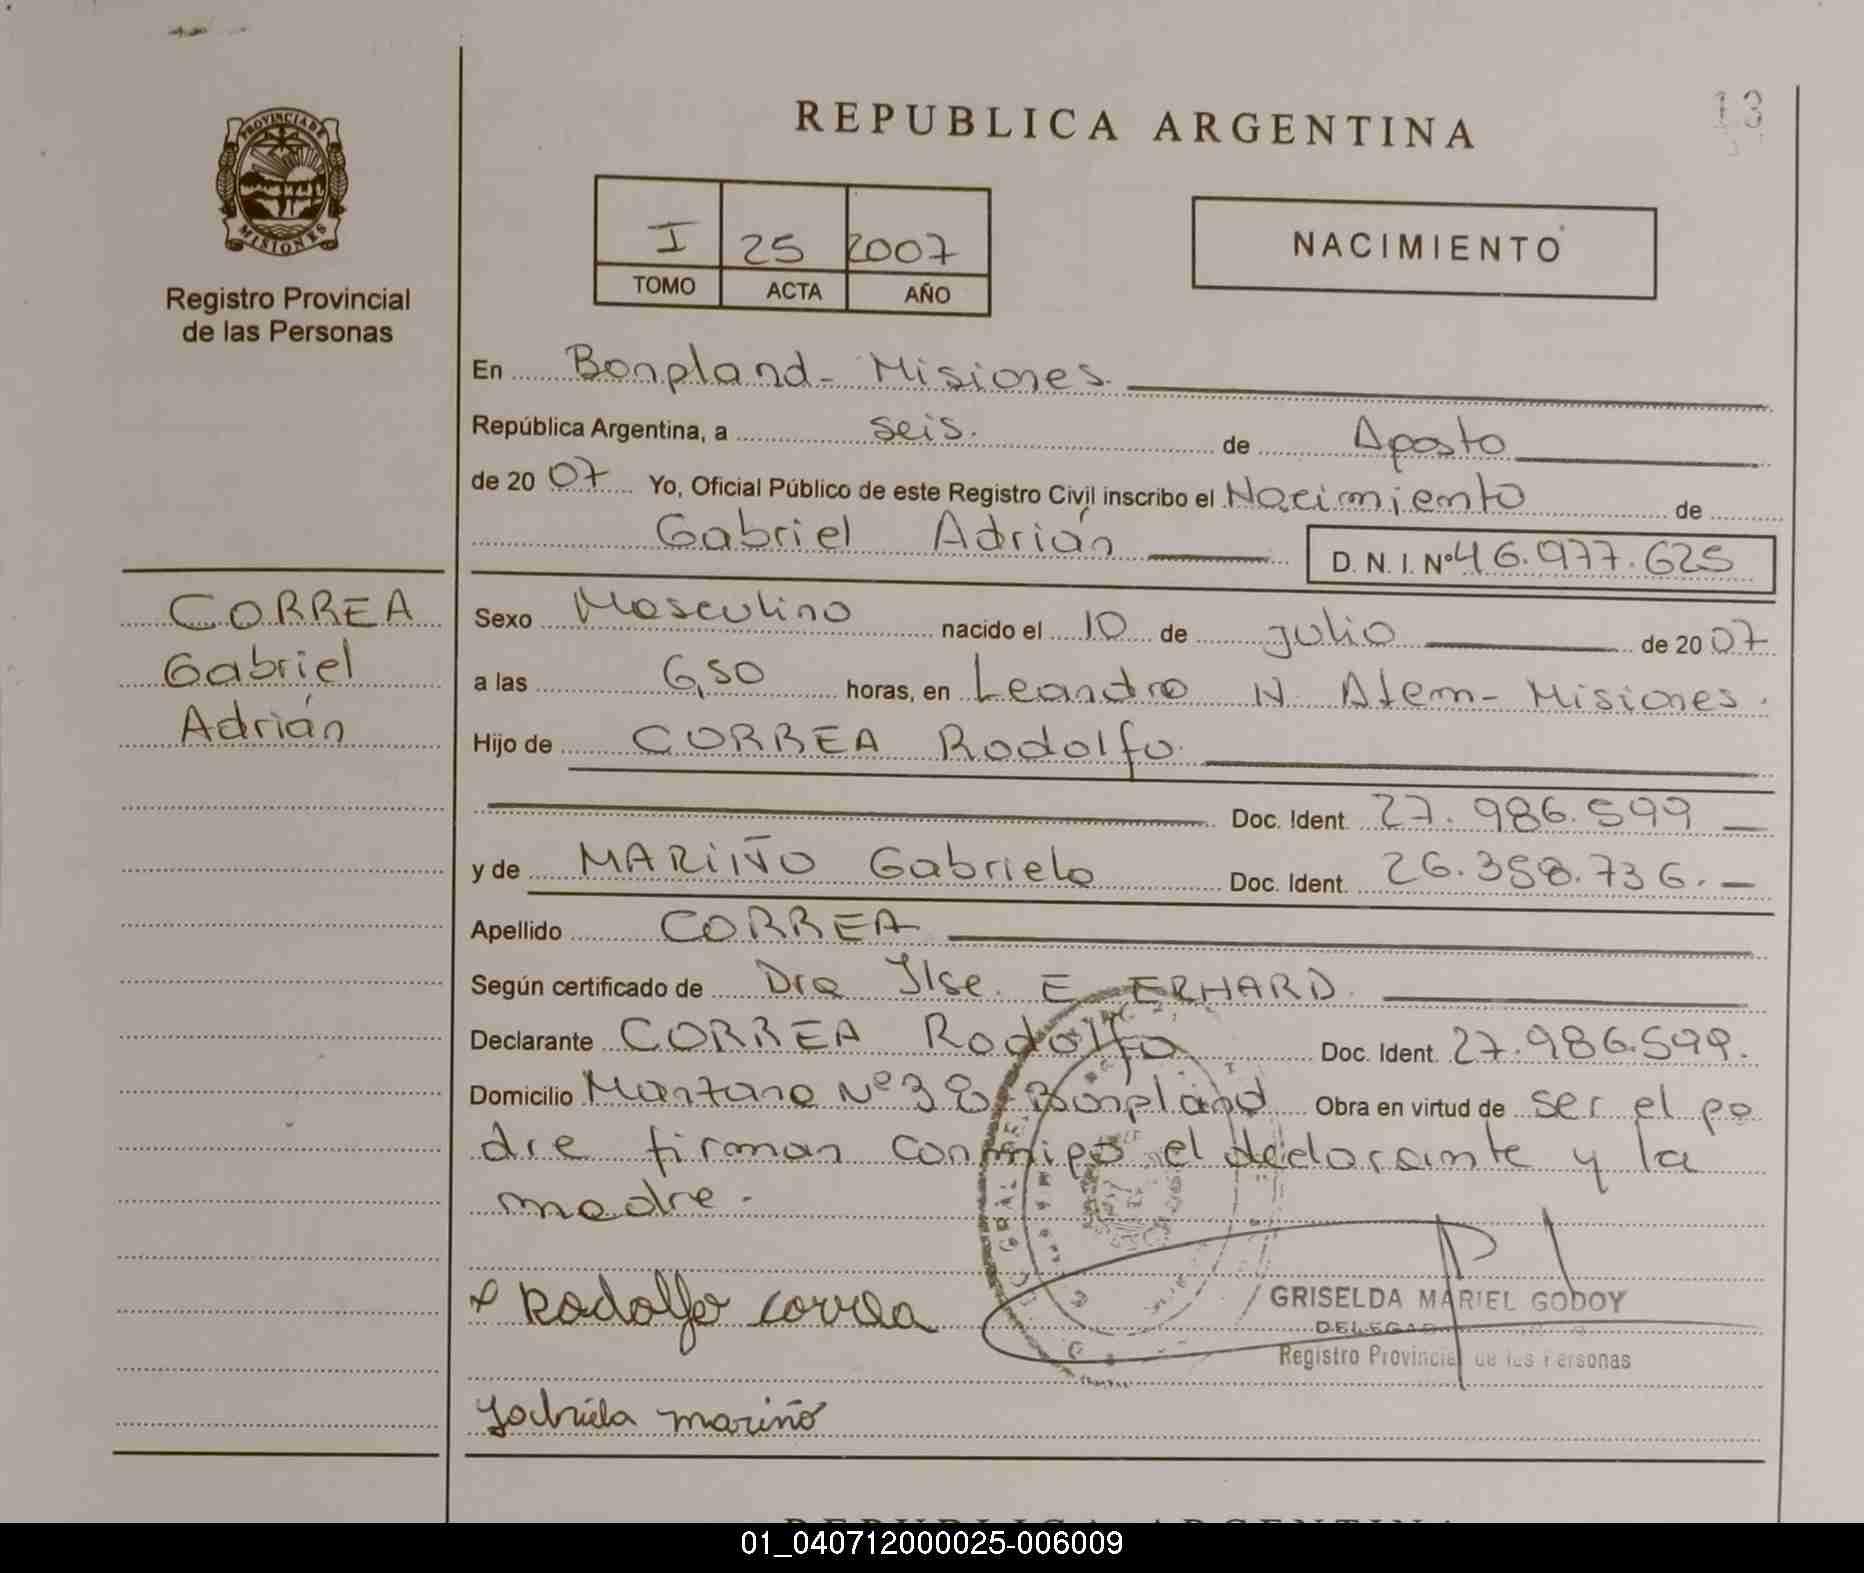 REPUBLICA ARGENTINA
13
PROVINCIA DE
MISIONES
Registro Provincial
de las Personas
I 25 2007
TOMO ACTA AÑO
NACIMIENTO
En Bonpland - Misiones.
República Argentina, a seis. de Agosto
de 2007 Yo, Oficial Público de este Registro Civil inscribo el Nacimiento de
Gabriel Adrián D. N. I. Nº 46.977.625
CORREA
Gabriel
Adrián
Sexo Masculino nacido el 10 de julio de 2007
a las 6,50 horas, en Leandro N. Alem - Misiones.
Hijo de CORREA Rodolfo.
Doc. Ident. 27.986.599
y de MARIÑO Gabriela Doc. Ident. 26.358.736.
Apellido CORREA
Según certificado de Dra Ilse. E ERHARD.
Declarante CORREA Rodolfo Doc. Ident. 27.986.599.
Domicilio Manzana Nº 38 - Bonpland Obra en virtud de ser el pa
dre firman conmigo el declarante y la
madre.
Rodolfo correa
GRISELDA MARIEL GODOY
Registro Provincial de las Personas
Gabriela mariño
REPUBLICA ARGENTINA
01_040712000025-006009